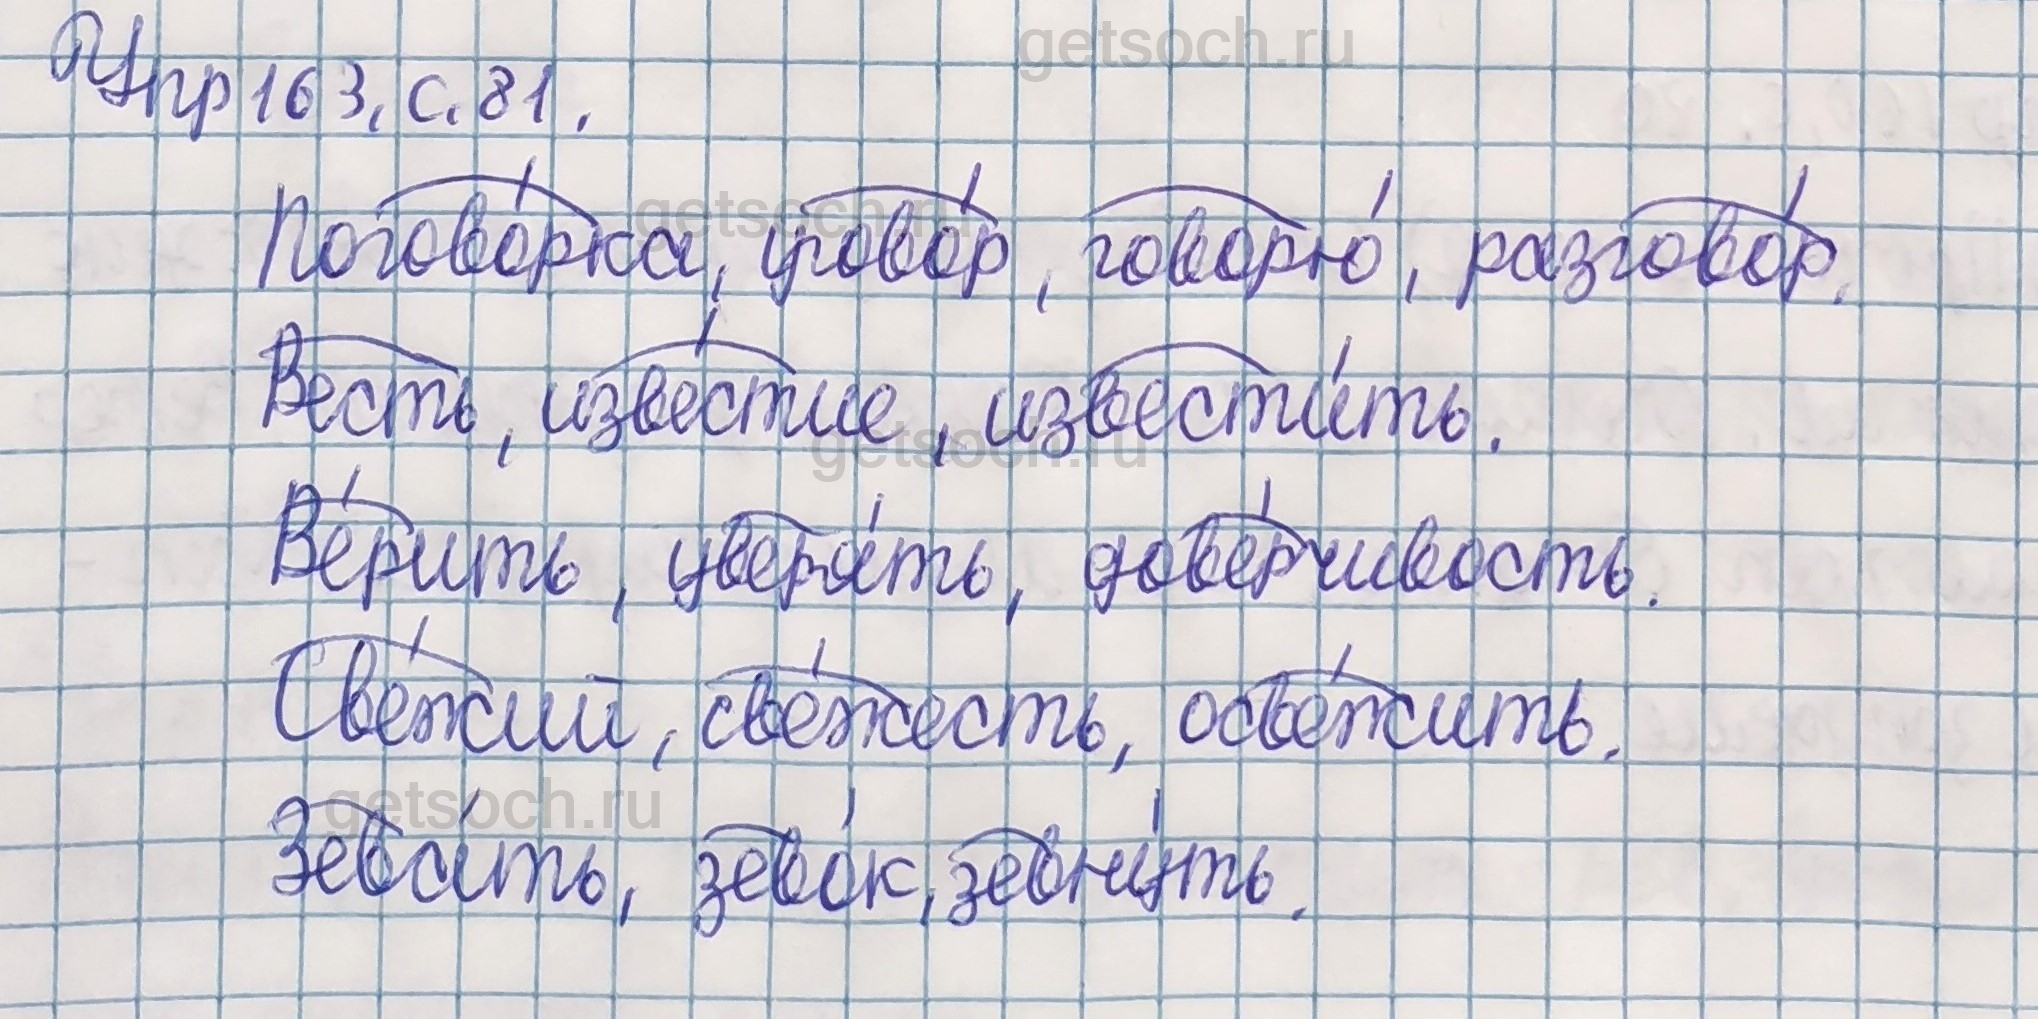 getsoch.ru
Упр 163, с. 81.
getsoch.ru
Погово́рка, угово́р, говорю́, разгово́р.
Весть, изве́стие, извести́ть.
getsoch.ru
Ве́рить, уверя́ть, дове́рчивость.
Све́жий, све́жесть, осве́жить.
getsoch.ru
Зева́ть, зево́к, зевну́ть.